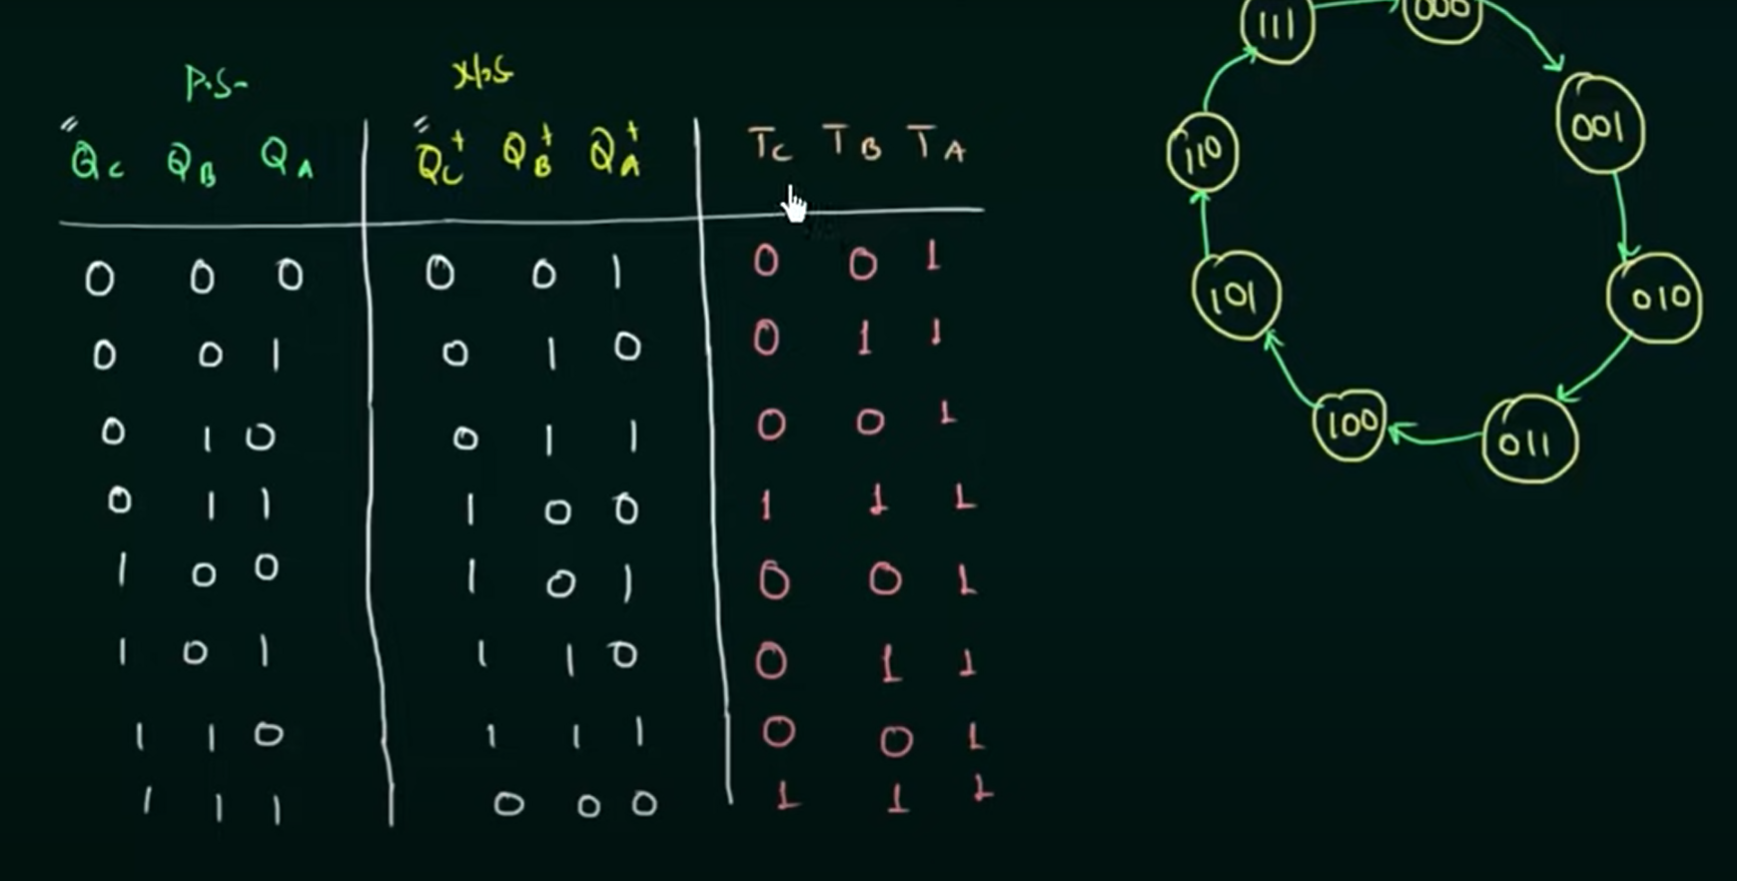 P.S- N.S
Qc QB QA QC⁺ QB⁺ QA⁺ TC TB TA
0 0 0 0 0 1 0 0 1
0 0 1 0 1 0 0 1 1
0 1 0 0 1 1 0 0 1
0 1 1 1 0 0 1 1 1
1 0 0 1 0 1 0 0 1
1 0 1 1 1 0 0 1 1
1 1 0 1 1 1 0 0 1
1 1 1 0 0 0 1 1 1
111 000
001
110
101 010
100 011